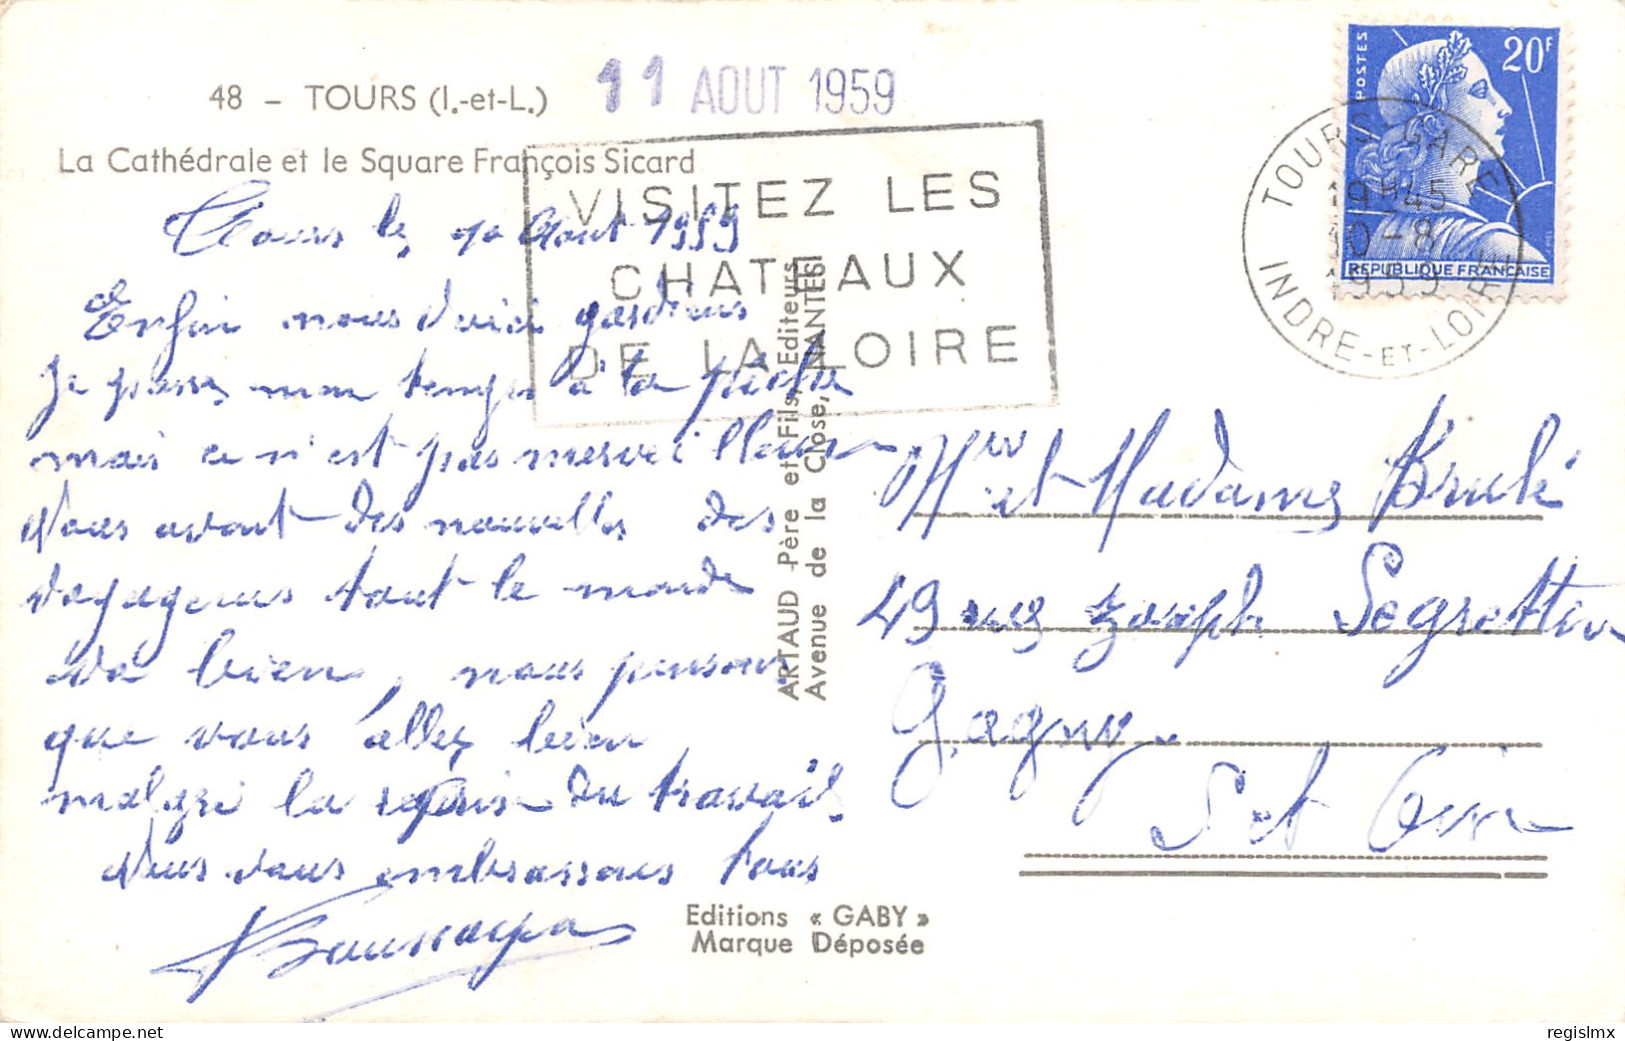 48 – TOURS (I.-et-L.)
11 AOUT 1959
La Cathédrale et le Square François Sicard
VISITEZ LES
CHATEAUX
DE LA LOIRE
POSTES
20F
REPUBLIQUE FRANÇAISE
TOURS-GARE
19H45
10-8
1959
INDRE-ET-LOIRE
Tours le, 10 Aout 1959
Enfin nous
je passe mon temps à la pêche
mais ce n'est pas merveilleux
Nous avont des nouvelles des
voyageurs tout le monde
va bien, nous pensons
que vous allez bien,
malgré la reprise du travail
Nous vous embrassons tous
Mr et Madame Brulé
49 rue Joseph Segrettin
Gagny.
Set Oise
ARTAUD Père et Fils, Editeurs
Avenue de la Close, NANTES
Editions « GABY »
Marque Déposée
regislmx